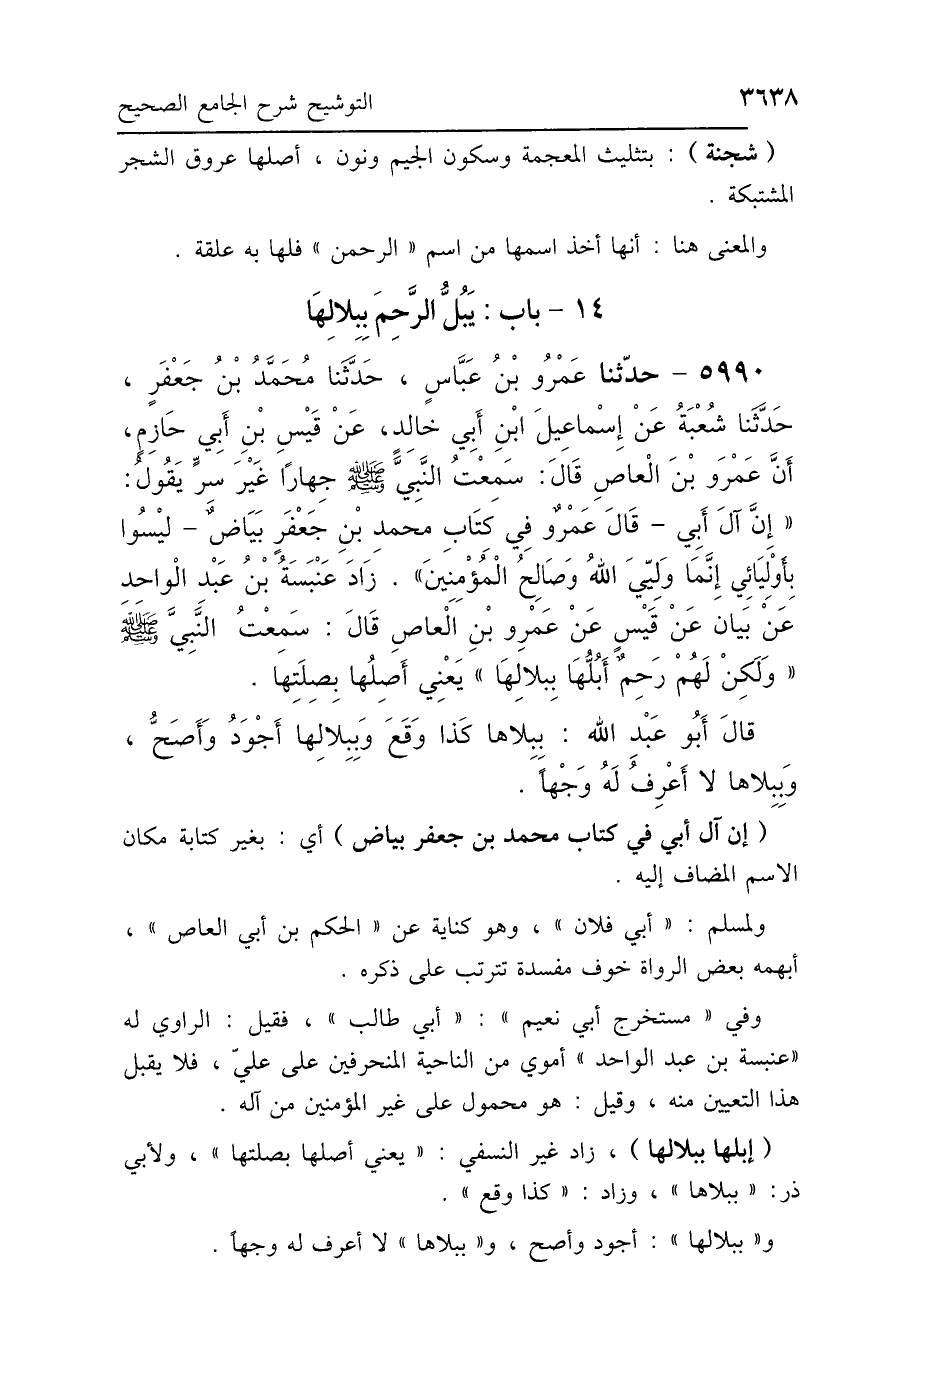 ٣٦٣٨ التوشيح شرح الجامع الصحيح
( شجنة ) : بتثليث المعجمة وسكون الجيم ونون ، أصلها عروق الشجر
المشتبكة .
والمعنى هنا : أنها أخذ اسمها من اسم « الرحمن » فلها به علقة .
١٤ - باب : يَبُلُّ الرَّحِمَ بِبِلالِهَا
٥٩٩٠ - حدّثنا عَمْرُو بْنُ عَبَّاسٍ ، حَدَّثَنا مُحَمَّدُ بْنُ جَعْفَرٍ ،
حَدَّثَنا شُعْبَةُ عَنْ إِسْماعِيلَ ابْنِ أَبِي خالِدٍ، عَنْ قَيْسِ بْنِ أَبِي حَازِمٍ،
أَنَّ عَمْرَو بْنَ الْعاصِ قَالَ: سَمِعْتُ النَّبِيَّ ﷺ جِهاراً غَيْرَ سِرٍّ يَقُولُ:
« إِنَّ آلَ أَبِي - قَالَ عَمْرٌو فِي كِتَابِ محمد بْنِ جَعْفَرٍ بَيَاضٌ - لَيْسُوا
بِأَوْلِيَائِي إِنَّمَا وَلِيِّيَ اللهُ وَصَالِحُ الْمُؤْمِنِينَ» . زَادَ عَنْبَسَةُ بْنُ عَبْدِ الْواحِدِ
عَنْ بَيَانٍ عَنْ قَيْسٍ عَنْ عَمْرِو بْنِ الْعاصِ قَالَ : سَمِعْتُ النَّبِيَّ ﷺ
« وَلَكِنْ لَهُمْ رَحِمٌ أَبُلُّهَا بِبلالِهَا » يَعْنِي أَصِلُها بِصِلَتِها .
قالَ أَبُو عَبْدِ الله : بِبِلاها كَذا وَقَعَ وَبِبِلالِها أَجْوَدُ وَأَصَحُّ ،
وَبِبِلاها لا أَعْرِفُ لَهُ وَجْهاً .
( إن آل أبي في كتاب محمد بن جعفر بياض ) أي : بغير كتابة مكان
الاسم المضاف إليه .
ولمسلم : « أبي فلان » ، وهو كناية عن « الحكم بن أبي العاص » ،
أبهمه بعض الرواة خوف مفسدة تترتب على ذكره .
وفي « مستخرج أبي نعيم » : « أبي طالب » ، فقيل : الراوي له
«عنبسة بن عبد الواحد » أموي من الناحية المنحرفين على عليّ ، فلا يقبل
هذا التعيين منه ، وقيل : هو محمول على غير المؤمنين من آله .
( إبلها ببلالها ) ، زاد غير النسفي : « يعني أصلها بصلتها » ، ولأبي
ذر: « ببلاها » ، وزاد : « كذا وقع » .
و« ببلالها » : أجود وأصح ، و« ببلاها » لا أعرف له وجهاً .